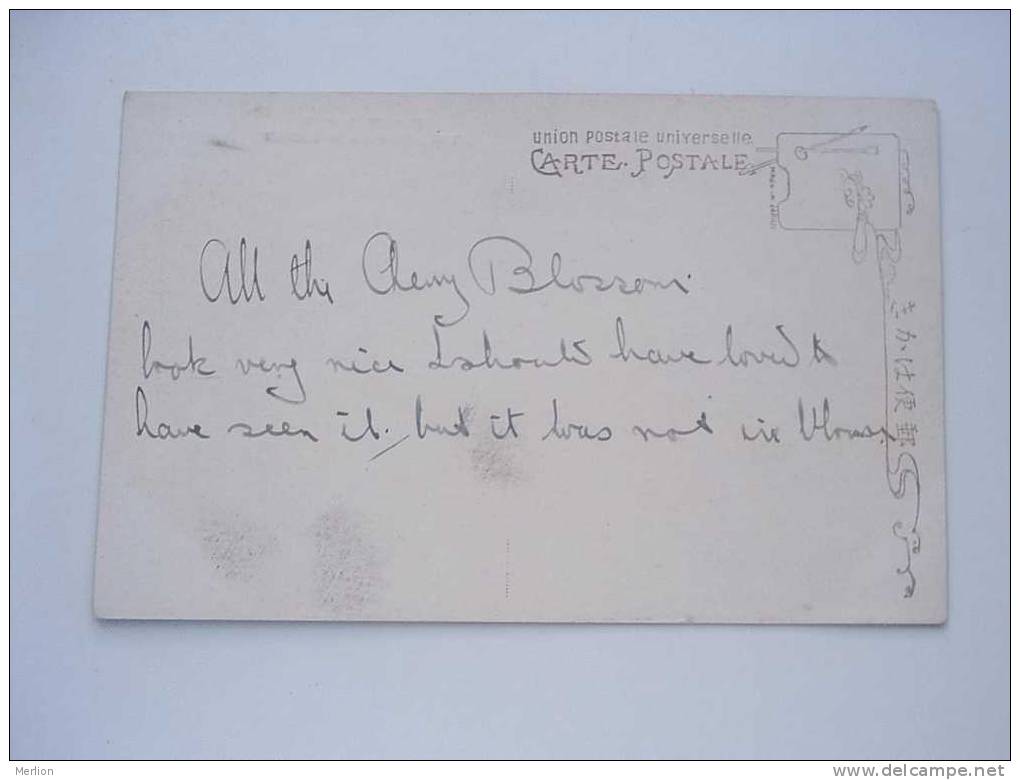 union postale universelle
CARTE·POSTALE
MADE IN JAPAN
きかは便郵
All the Cherry Blossom
look very nice I should have loved to
have seen it. but it was not in bloom
Merlion
www.delcampe.net